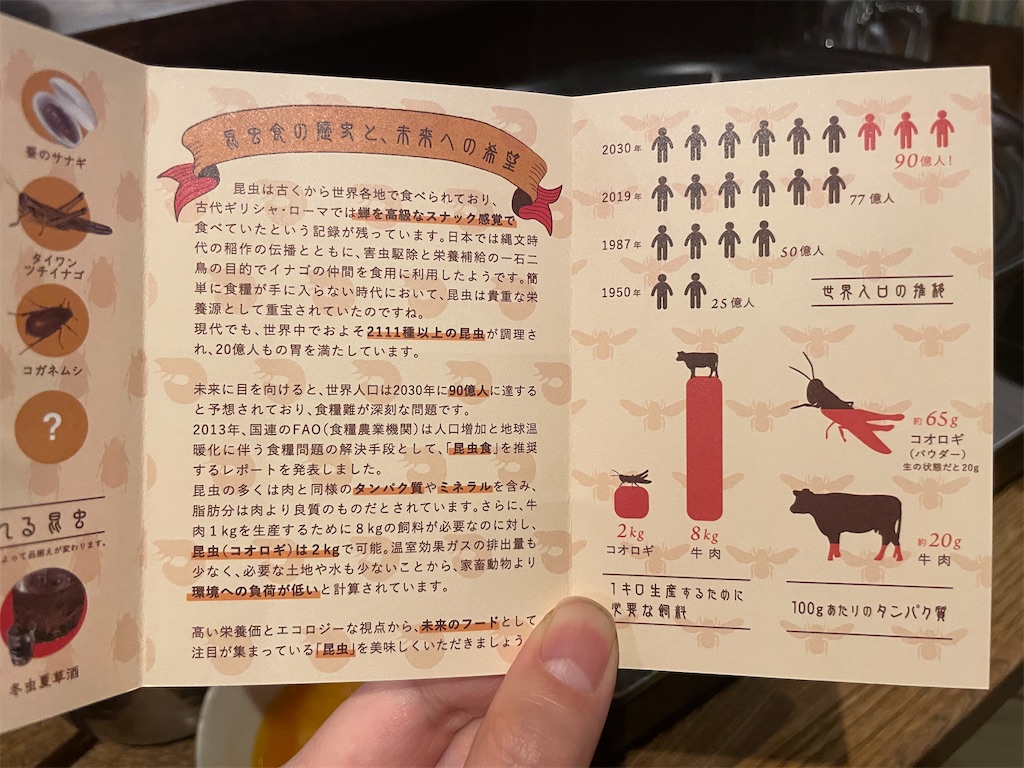 蚕のサナギ
タイワン
ツチイナゴ
コガネムシ
?
れる昆虫
よって品揃えが変わります。
冬虫夏草酒
昆虫食の歴史と、未来への希望
昆虫は古くから世界各地で食べられており、
古代ギリシャ・ローマでは蝉を高級なスナック感覚で
食べていたという記録が残っています。日本では縄文時
代の稲作の伝播とともに、害虫駆除と栄養補給の一石二
鳥の目的でイナゴの仲間を食用に利用したようです。簡
単に食糧が手に入らない時代において、昆虫は貴重な栄
養源として重宝されていたのですね。
現代でも、世界中でおよそ2111種以上の昆虫が調理さ
れ、20億人もの胃を満たしています。
未来に目を向けると、世界人口は2030年に90億人に達する
と予想されており、食糧難が深刻な問題です。
2013年、国連のFAO(食糧農業機関)は人口増加と地球温
暖化に伴う食糧問題の解決手段として、「昆虫食」を推奨
するレポートを発表しました。
昆虫の多くは肉と同様のタンパク質やミネラルを含み、
脂肪分は肉より良質のものだとされています。さらに、牛
肉1kgを生産するために8kgの飼料が必要なのに対し、
昆虫(コオロギ)は2kgで可能。温室効果ガスの排出量も
少なく、必要な土地や水も少ないことから、家畜動物より
環境への負荷が低いと計算されています。
高い栄養価とエコロジーな視点から、未来のフードとして
注目が集まっている「昆虫」を美味しくいただきましょう
2030年
90億人!
2019年
77億人
1987年
50億人
1950年
25億人
世界人口の推移
2kg
コオロギ
8kg
牛肉
1キロ生産するために
必要な飼料
約65g
コオロギ
(パウダー)
生の状態だと20g
約20g
牛肉
100gあたりのタンパク質